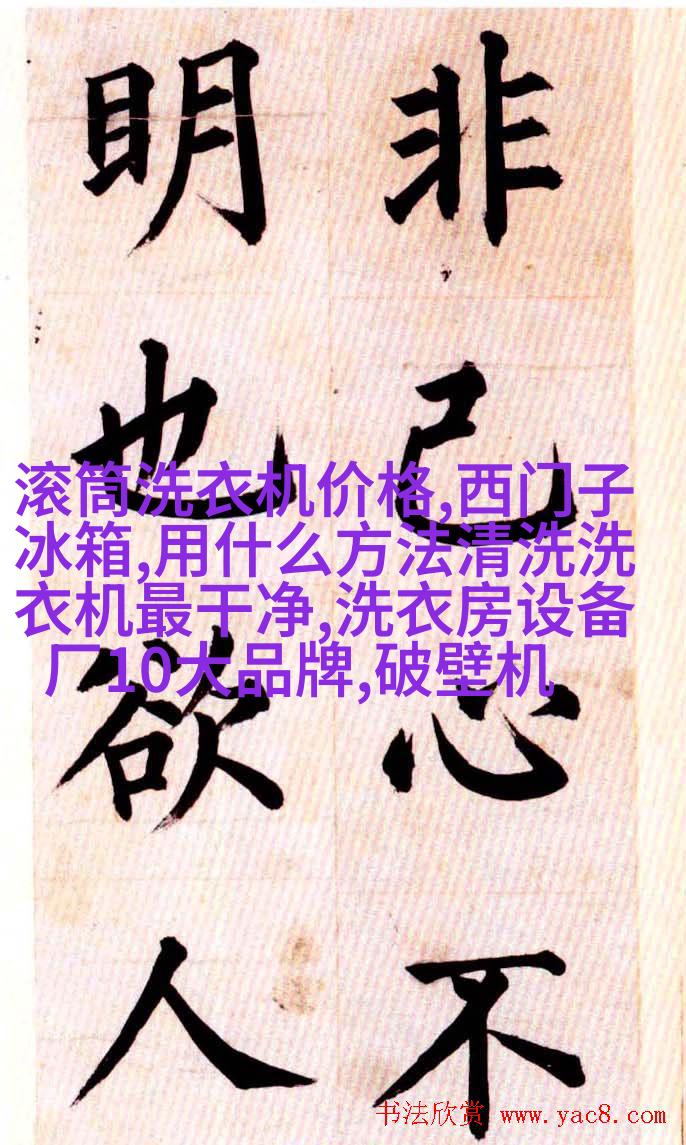 非己心不
明也欲人
滚筒洗衣机价格,西门子
冰箱,用什么方法清洗洗
衣机最干净,洗衣房设备
厂10大品牌,破壁机
书法欣赏 www.yac8.com